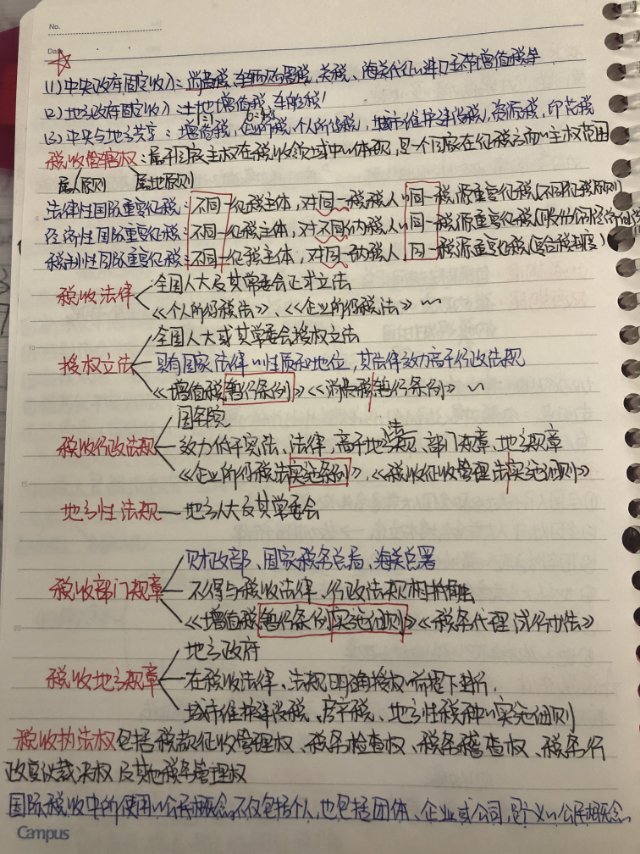 No.
Date
(1)中央政府固定收入:消费税、车辆购置税、关税、海关代征的进口环节增值税等
(2)地方政府固定收入:土地增值税、车船税
(3)中央与地方共享:增值税、企所税、个人所得税、城市维护建设税、资源税、印花税
税收管辖权:属于国家主权在税收领域中的体现,是一个国家在征税方面的主权范围
属人原则 属地原则
法律性国际重复征税:不同一征税主体,对同一纳税人的同一税源重复征税(不同征税原则)
经济性国际重复征税:不同一征税主体,对不同纳税人的同一税源重复征税(股份公司经济
税制性国际重复征税:不同一征税主体,对同一纳税人同一税源重复征税(复合税制度)
全国人大及其常委会正式立法
税收法律
《个人所得税法》、《企业所得税法》
全国人大或其常委会授权立法
授权立法 具有国家法律的性质和地位,其法律效力高于行政法规
《增值税暂行条例》《消费税暂行条例》
国务院
税收行政法规 效力低于宪法、法律,高于地方法规、部门规章、地方规章
《企业所得税法实施条例》、《税收征收管理法实施细则》
地方性法规 地方人大及其常委会
财政部、国家税务总局、海关总署
税收部门规章 不得与税收法律、行政法规相抵触
《增值税暂行条例实施细则》《税务代理试行办法》
地方政府
税收地方规章 在税收法律、法规明确授权的前提下进行.
城市维护建设税、房产税、地方性税种的实施细则
税收执法权包括税款征收管理权、税务检查权、税务稽查权、税务行
政复议裁决权及其他税务管理权
国际税收中的使用的公民概念不仅包括个人,也包括团体、企业或公司,是广义的公民概念.
Campus